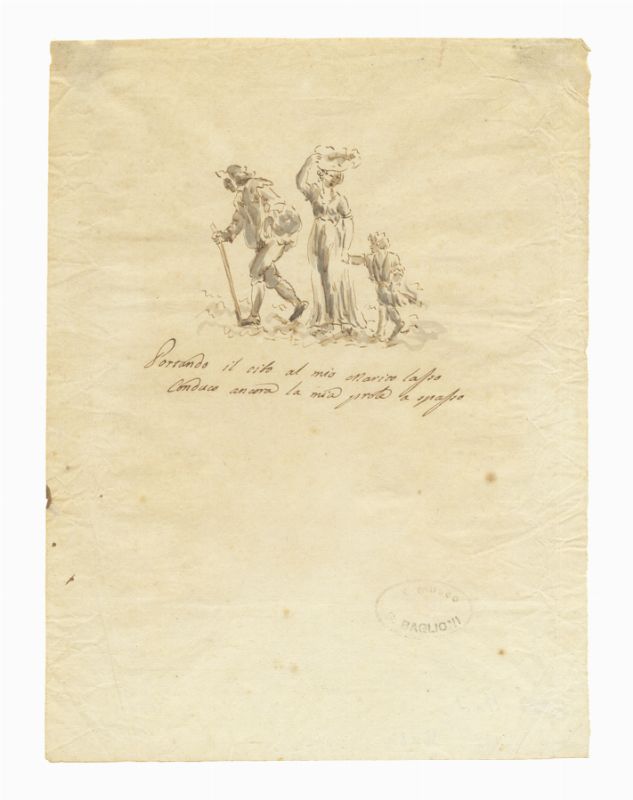 Portando il cibo al mio Marito lasso
Conduco ancora la mia prole a spasso
MUSEO
BAGLIONI